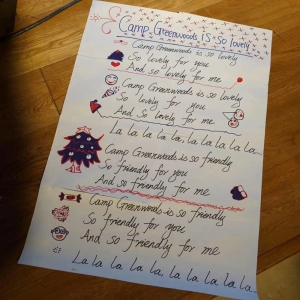 Camp Greenwoods is so lovely
Camp Greenwoods is so lovely
So lovely for you
And so lovely for me
Camp Greenwoods is so lovely
So lovely for you
And so lovely for me
La la la la la, la la la la la
Camp Greenwoods is so friendly
So friendly for you
And so friendly for me
Camp Greenwoods is so friendly
So friendly for you
And so friendly for me
La la la la la la la la la